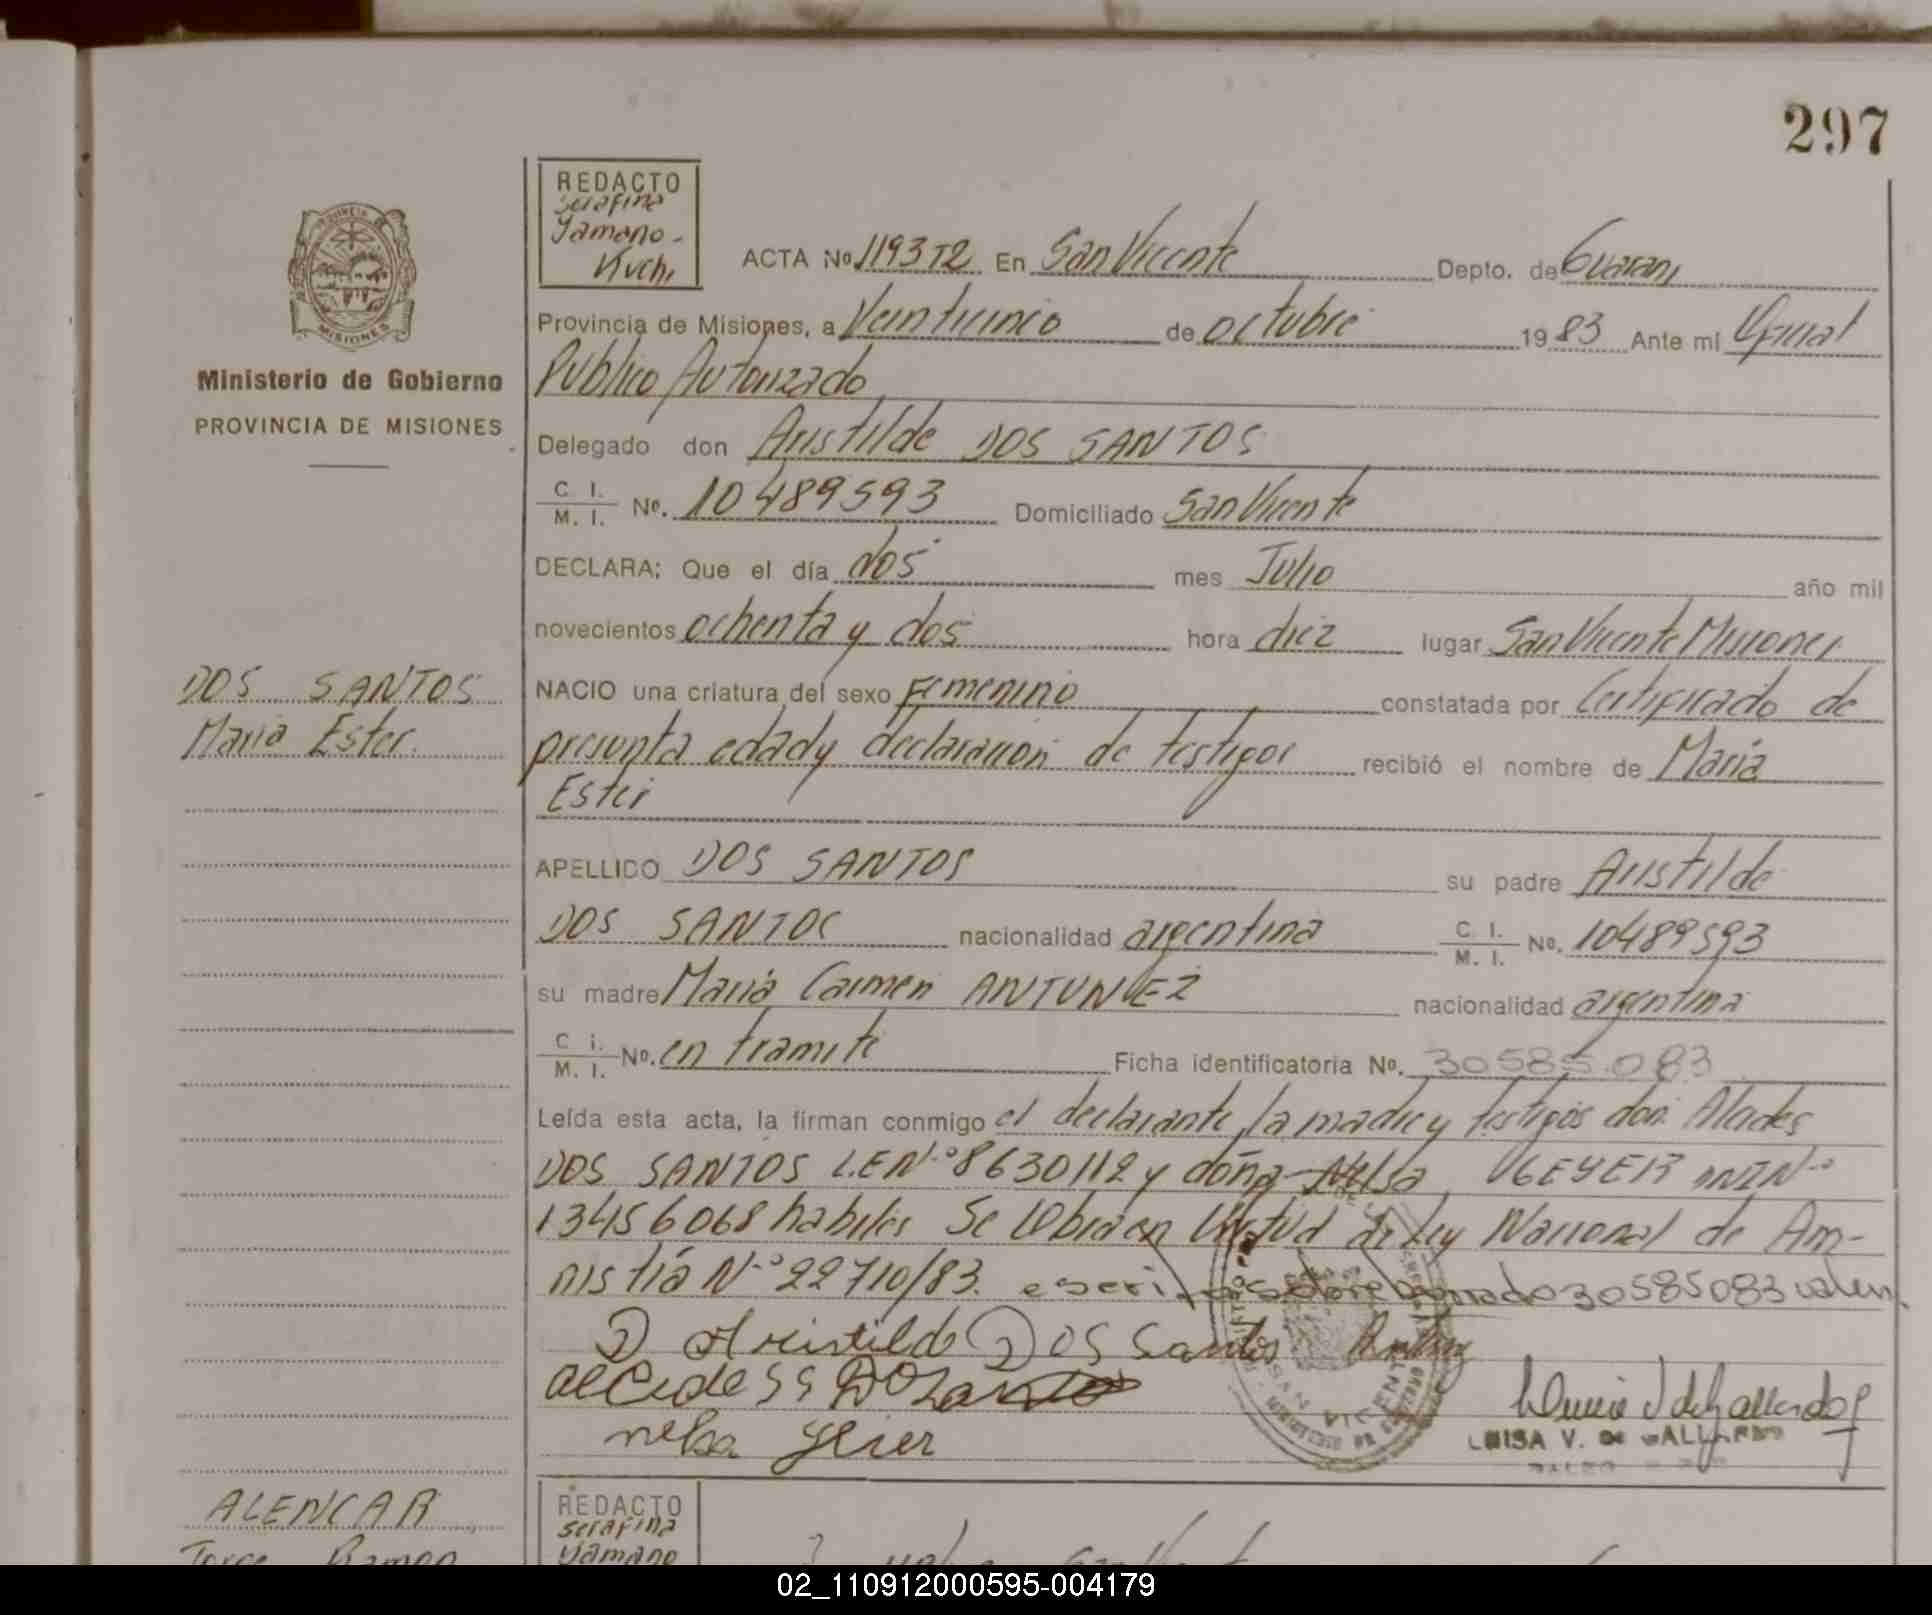 297
REDACTO
Serafina
Yamano-
Kuchi
ACTA Nº 1193T2 En San Vicente Depto. de Guarani
PROVINCIA DE MISIONES
Provincia de Misiones, a Veinticinco de octubre 1983 Ante mi Oficial
Ministerio de Gobierno
Publico Autorizado
PROVINCIA DE MISIONES
Delegado don Aristilde DOS SANTOS
C. I.
M. I. Nº. 10489593 Domiciliado San Vicente
DECLARA: Que el día dos mes Julio año mil
novecientos ochenta y dos hora diez lugar San Vicente Misiones
DOS SANTOS
NACIO una criatura del sexo Femenino constatada por Certificado de
Maria Ester.
presunta edad y declaracion de testigos recibió el nombre de Maria
Ester
APELLIDO DOS SANTOS su padre Aristilde
DOS SANTOS nacionalidad argentina C. I.
M. I. Nº. 10489593
su madre Maria Carmen ANTUNEZ nacionalidad argentina
C. I.
M. I. Nº. en tramite Ficha identificatoria Nº. 30585.083
Leída esta acta, la firman conmigo el declarante, la madre y testigos don Alcides
DOS SANTOS L.E Nº 8630112 y doña Nelsa GEYER DNI Nº
13456068 habiles Se labra en Virtud de Ley Nacional de Am-
nistía Nº 22710/83. escrito sobre borrado 30585083 valen.
Aristilde DOS Santos
alCides DOSantos
nelsa geier
LUISA V. DE GALLARDO
SAN VICENTE
ALENCAR
REDACTO
Serafina
Yamano
Jorge Ramon
02_110912000595-004179